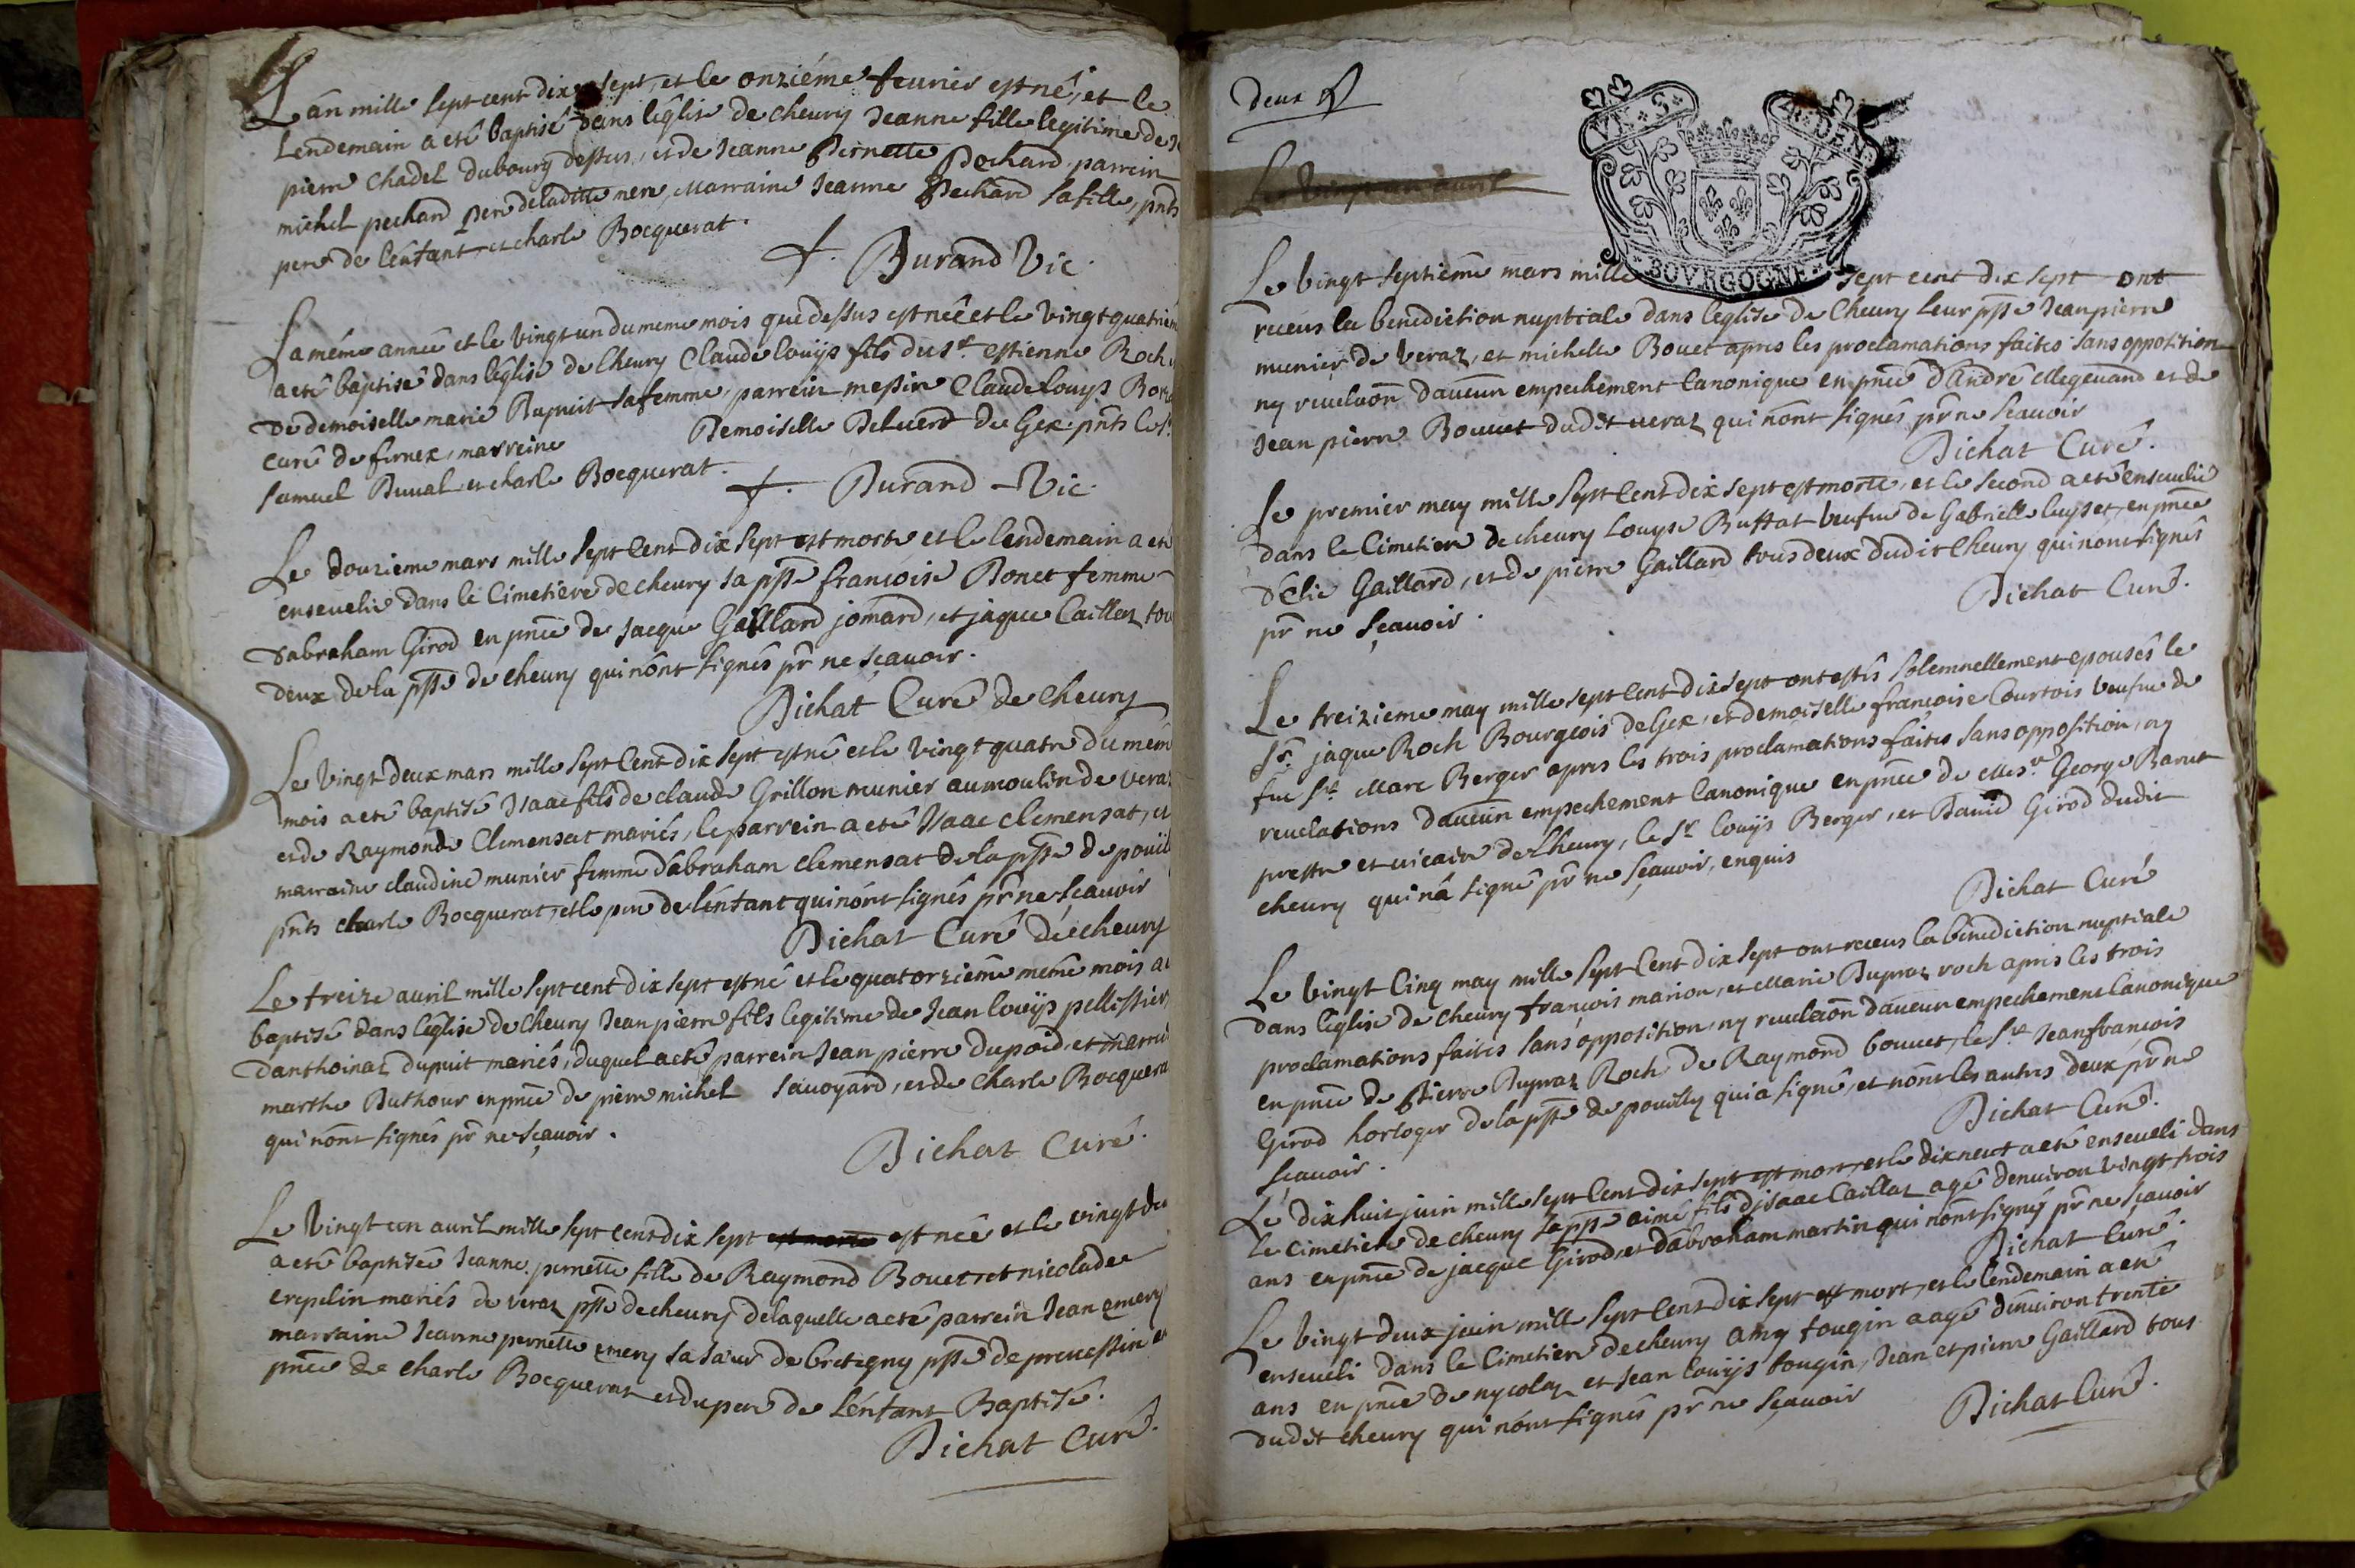 L'an mille sept cent dix sept, et le onziéme feurier est né, et le
Lendemain a eté baptisé dans léglise de cheury Jeanne fille legitime de
pierre chadel dubourg dessus, et de Jeanne Pernette Pechard parrein
michel pechard pere deladitte mere, Marraine Jeanne Pechard sa fille, pnts
pere de lenfant et charle Bocquerat.
f. Durand Vic.
La méme année et le vingt un du meme mois que dessus est née et le vingt quatriém
a eté baptisé dans léglise de Cheury Claude louÿs fils du Sr. estienne Roch
de demoiselle marie Dupuit sa femme, parrein messire Claude louys
curé de fernex, marreine Demoiselle de Gex. pnts
samuel Duual et charle Bocquerat.
f. Durand Vic.
Le douzieme mars mille sept Cent dix sept est morte et le lendemain a eté
enseuelie dans le Cimetiere de cheury sa psse francoise Bonet femme
d'abraham Girod en pnce de Jacque Gaillard jomard, et jaque Caillaz tou
deux de la psse de cheury qui nont signés pr ne sçauoir.
Dichat Curé de Cheury
Le Vingt deux mars mille sept Cent dix sept est né et le vingt quatre du mém
mois a eté baptisé Isaac fils de claude Grillon munier au moulin de vera
et de Raymonde Clemensat mariés, le parrein a eté Isaac clemensat, et
marraine claudine munier femme d'abraham clemensat de la psse de pouil
pnts charle Bocquerat, et le pere de lenfant qui nont signés pr ne sçauoir
Dichat Curé de cheury
Le treize auril mille sept cent dix sept est né et le quatorziéme méme mois a
baptisé dans léglise de cheury Jean pierre fils legitime de Jean louÿs pellissier,
danthoinaz dupuit mariés, duquel a eté parrein Jean pierre dupoid, et marr
marthe Duthour en pnce de pierre michel sauoyard, et de charle Bocquera
qui nont signés pr ne sçauoir.
Dichat Curé.
Le Vingt un auril mille sept cent dix sept est morte est née et le vingt de
a eté baptisée Jeanne pernette fille de Raymond Bouet et nicolade
crepelin mariés de veraz psse de cheury delaquelle a eté parrein Jean emery
marraine Jeanne pernette emery sa sœur de bretigny psse de preuessin en
pnce de charle Bocquerat et du pere de lénfant Baptisé.
Dichat Curé.
deux
Le vingt un auril
VN. S. 4. DEN
BOVRGOGNE
Le vingt septiéme mars mille sept cent dix sept ont
receus la benediction nuptiale dans léglise de Cheury leur psse Jean pierre
munier de veraz, et michelle Bouet apres les proclamations faites sans opposition
ny reuelaon daucun empechement Canonique en pnce dAndré Megeuand et de
Jean pierre Bouuet dudit ueraz qui nont signés pr ne sçauoir
Dichat Curé.
Le premier may mille sept Cent dix sept est morte, et le second a eté enseuelie
dans le Cimetiere de cheury Louyse Buffat veufue de Gabrielle luyset, en pnce
d'Elie Gaillard, et de pierre Gaillard tous deux dudit Cheury qui nont signés
pr ne sçauoir.
Dichat Curé.
Le treizieme may mille sept Cent dix sept ont estés solemnellement epousés le
Sr. jaque Roch Bourgeois de Gex, et demoiselle francoise Courtois veufue de
fue Sr. Marc Berger apres les trois proclamations faites sans opposition, ny
reuelations daucun empechement Canonique en pnce de Mesre George Baret
prestre et uicaire de Cheury, le Sr louÿs Berger, et Dauid Girod dudit
cheury qui nà signé pr ne sçauoir, enquis
Dichat Curé
Le vingt Cinq may mille sept Cent dix sept ont receus la benediction nuptiale
dans léglise de cheury francois marion, et Marie Dupraz roch apres les trois
proclamations faites sans opposition, ny reuelaon daucun empechement Canonique
en pnce de Pierre Dupraz Roch de Raymond bouuet, le Sr Jean francois
Girod horloger de la psse de pouilly qui a signé, et nont les autres deux pr ne
scauoir.
Dichat Curé.
Le dix huit juin mille sept Cent dix sept est mort, et le dix neuf a eté enseueli dans
le Cimetiere de cheury sa psse aimé fils d'isaac Caillaz agé denuiron vingt trois
ans en pnce de jacque Girod, et dabraham martin qui nont signés pr ne sçauoir
Dichat Curé.
Le vingt deux juin mille sept Cent dix sept est mort, et le lendemain a eté
enseueli dans le Cimetiere de cheury amy tougin aagé denuiron trente
ans en pnce de nycolaz et Jean louÿs tougin, Jean et pierre Gaillard tous
dudit cheury qui nont signés pr ne sçauoir
Dichat Curé.